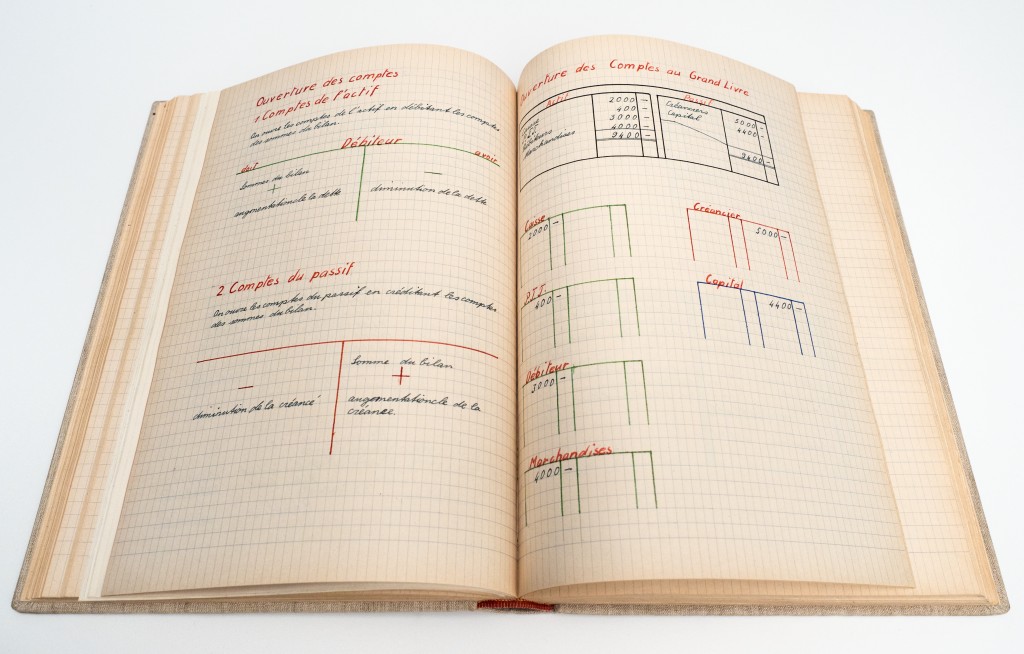 Ouverture des comptes
1 Comptes de l'actif
On ouvre les comptes de l'actif en débitant les comptes
des sommes du bilan.
Débiteur
doit
avoir
Sommes du bilan
+
augmentation de la dette
—
diminution de la dette
2 Comptes du passif
On ouvre les comptes du passif en créditant les comptes
des sommes du bilan.
—
diminution de la créance
Somme du bilan
+
augmentation de de la
créance
Ouverture des Comptes au Grand Livre
Actif
2000 —
400 —
3000 —
Marchandises 4000 —
9400 —
Passif
Créanciers 5000 —
Capital 4400 —
9400 —
Caisse
2000 —
P.T.T.
400 —
Débiteur
3000 —
Marchandises
4000 —
Créancier
5000 —
Capital
4400 —